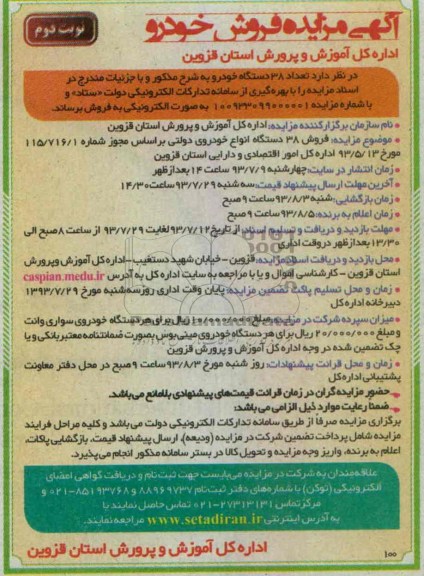 آگهی مزایده فروش خودرو
نوبت دوم
اداره کل آموزش و پرورش استان قزوین
در نظر دارد تعداد ۳۸ دستگاه خودرو به شرح مذکور و با جزئیات مندرج در
اسناد مزایده را با بهره‌گیری از سامانه تدارکات الکترونیکی دولت «ستاد» و
با شماره مزایده ۱۰۰۹۳۳۰۹۹۰۰۰۰۰۱ به صورت الکترونیکی به فروش برساند.
• نام سازمان برگزارکننده مزایده: اداره کل آموزش و پرورش استان قزوین
• موضوع مزایده: فروش ۳۸ دستگاه انواع خودروی دولتی براساس مجوز شماره ۱۱۵/۷۱۶/۱
مورخ ۹۳/۵/۱۳ اداره کل امور اقتصادی و دارایی استان قزوین
• زمان انتشار در سایت: چهارشنبه ۹۳/۷/۹ ساعت ۱۴ بعدازظهر
• آخرین مهلت ارسال پیشنهاد قیمت: سه شنبه ۹۳/۷/۲۹ ساعت ۱۴/۳۰
• زمان بازگشایی: شنبه ۹۳/۸/۳ ساعت ۹ صبح
• زمان اعلام به برنده: ۹۳/۸/۵ ساعت ۹ صبح
• مهلت بازدید و دریافت و تسلیم اسناد: از تاریخ ۹۳/۷/۱۲ لغایت ۹۳/۷/۲۹ از ساعت ۸ صبح الی
۱۳/۳۰ بعدازظهر دروقت اداری
• محل بازدید و دریافت اسناد مزایده: قزوین - خیابان شهید دستغیب - اداره کل آموزش وپرورش
استان قزوین - کارشناسی اموال و یا با مراجعه به سایت اداره کل به آدرس caspian.medu.ir
• زمان و محل تسلیم پاکت تضمین مزایده: پایان وقت اداری روز سه‌شنبه مورخ ۱۳۹۳/۷/۲۹
دبیرخانه اداره کل
• میزان سپرده شرکت در مزایده: مبلغ ۱۰/۰۰۰/۰۰۰ ریال برای هر دستگاه خودروی سواری وانت
و مبلغ ۲۰/۰۰۰/۰۰۰ ریال برای هر دستگاه خودروی مینی‌بوس بصورت ضمانتنامه معتبر بانکی و یا
چک تضمین شده در وجه اداره کل آموزش و پرورش قزوین
• زمان و محل قرائت پیشنهادات: روز شنبه مورخ ۹۳/۸/۳ ساعت ۹ صبح در محل دفتر معاونت
پشتیبانی اداره کل
حضور مزایده گران در زمان قرائت قیمت‌های پیشنهادی بلامانع می‌باشد.
ضمنا رعایت موارد ذیل الزامی می باشد:
برگزاری مزایده صرفاً از طریق سامانه تدارکات الکترونیکی دولت می باشد و کلیه مراحل فرایند
مزایده شامل پرداخت تضمین شرکت در مزایده (ودیعه)، ارسال پیشنهاد قیمت، بازگشایی پاکات،
اعلام به برنده، واریز وجه مزایده و تحویل کالا در بستر سامانه مذکور انجام می‌پذیرد.
علاقه‌مندان به شرکت در مزایده می‌بایست جهت ثبت نام و دریافت گواهی امضای
الکترونیکی (توکن) با شماره‌های دفتر ثبت‌نام ۸۸۹۶۹۷۳۷ و ۸۵۱۹۳۷۶۸-۰۲۱ و
مرکز تماس ۲۷۳۱۳۱۳۱-۰۲۱ تماس حاصل نمایند یا
به آدرس اینترنتی www.setadiran.ir مراجعه نمایند.
اداره کل آموزش و پرورش استان قزوین
۱۰۰